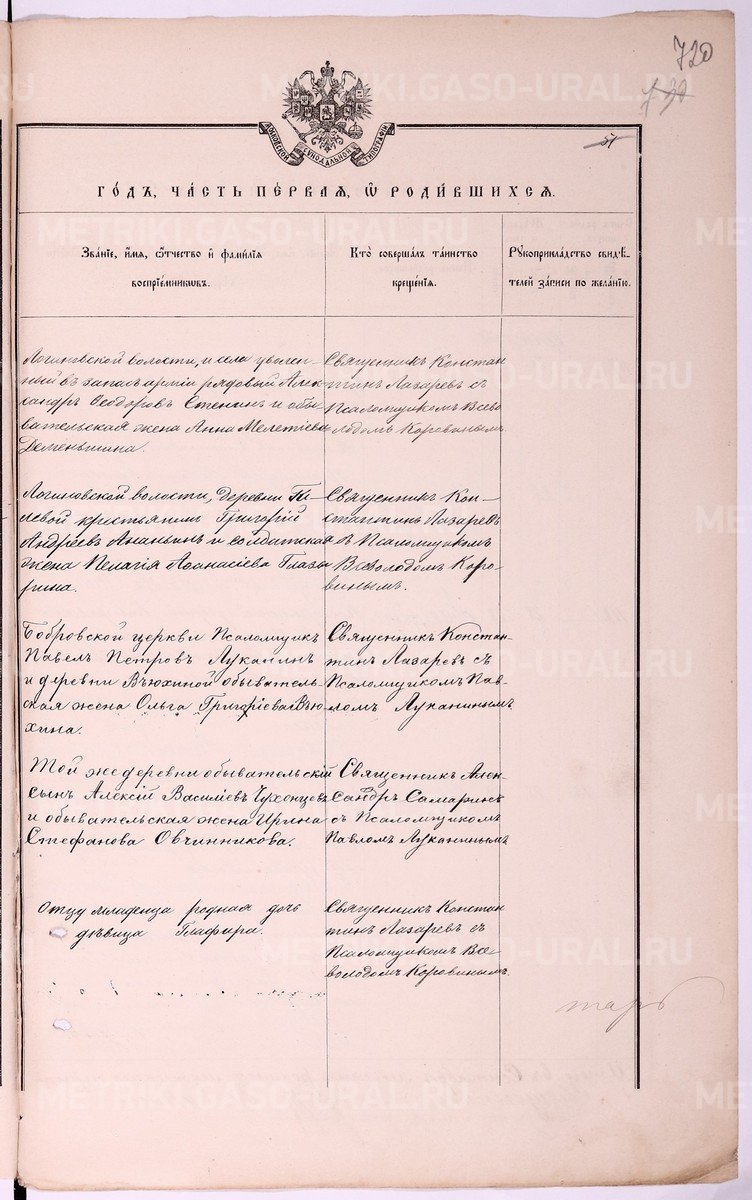 720
730
51
МОСКОВСКОЙ СѴНОДАЛЬНОЙ ТИПОГРАФІИ
ГО́ДЪ, ЧА́СТЬ ПЕ́РВАЯ, Ѡ РОДИ́ВШИХСЯ.
Зва́нїе, и́мя, ѻ҆́тчество и҆ фами́лїя
воспрїе́мникѡвъ.
Кто̀ соверша́лъ та́инство
креще́нїя.
Рꙋкоприкла́дство свидѣ́-
телей за́писи по жела́нїю.
Логиновской волости, и села уволен-
ный въ запасъ арміи рядовый Алек
сандръ Ѳеодоровъ Степинъ и обы-
вательская жена Анна Мелетіева
Деменьшина.
Священникъ Констан
тинъ Лазаревъ съ
Псаломщикомъ Всево
лодомъ Коровинымъ
Логиновской волости, деревни
крестьянинъ Григорій
Андреевъ Ананьинъ и солдатская
жена Пелагія Аѳанасіева Глазы
рина.
Священникъ Кон-
стантинъ Лазаревъ
съ Псаломщикомъ
Всеволодомъ Коро-
винымъ.
Бобровской церкви Псаломщикъ
Павелъ Петровъ Луканинъ
и деревни Вьюхиной обыватель-
ская жена Ольга Григоріева Вью
хина.
Священникъ Констан-
тинъ Лазаревъ съ
Псаломщикомъ Пав-
ломъ Луканинымъ
Той же деревни обывательскій
сынъ Алексій Василіевъ Чухонцевъ
и обывательская жена Ирина
Стефанова Овчинникова.
Священникъ Алек-
сандръ Самаринъ
съ Псаломщикомъ
Павломъ Луканинымъ
Отцу младенца родная дочь
дѣвица Глафира.
Священникъ Констан
тинъ Лазаревъ съ
Псаломщикомъ Все-
володомъ Коровинымъ.
тарь
METRIKI.GASO-URAL.RU